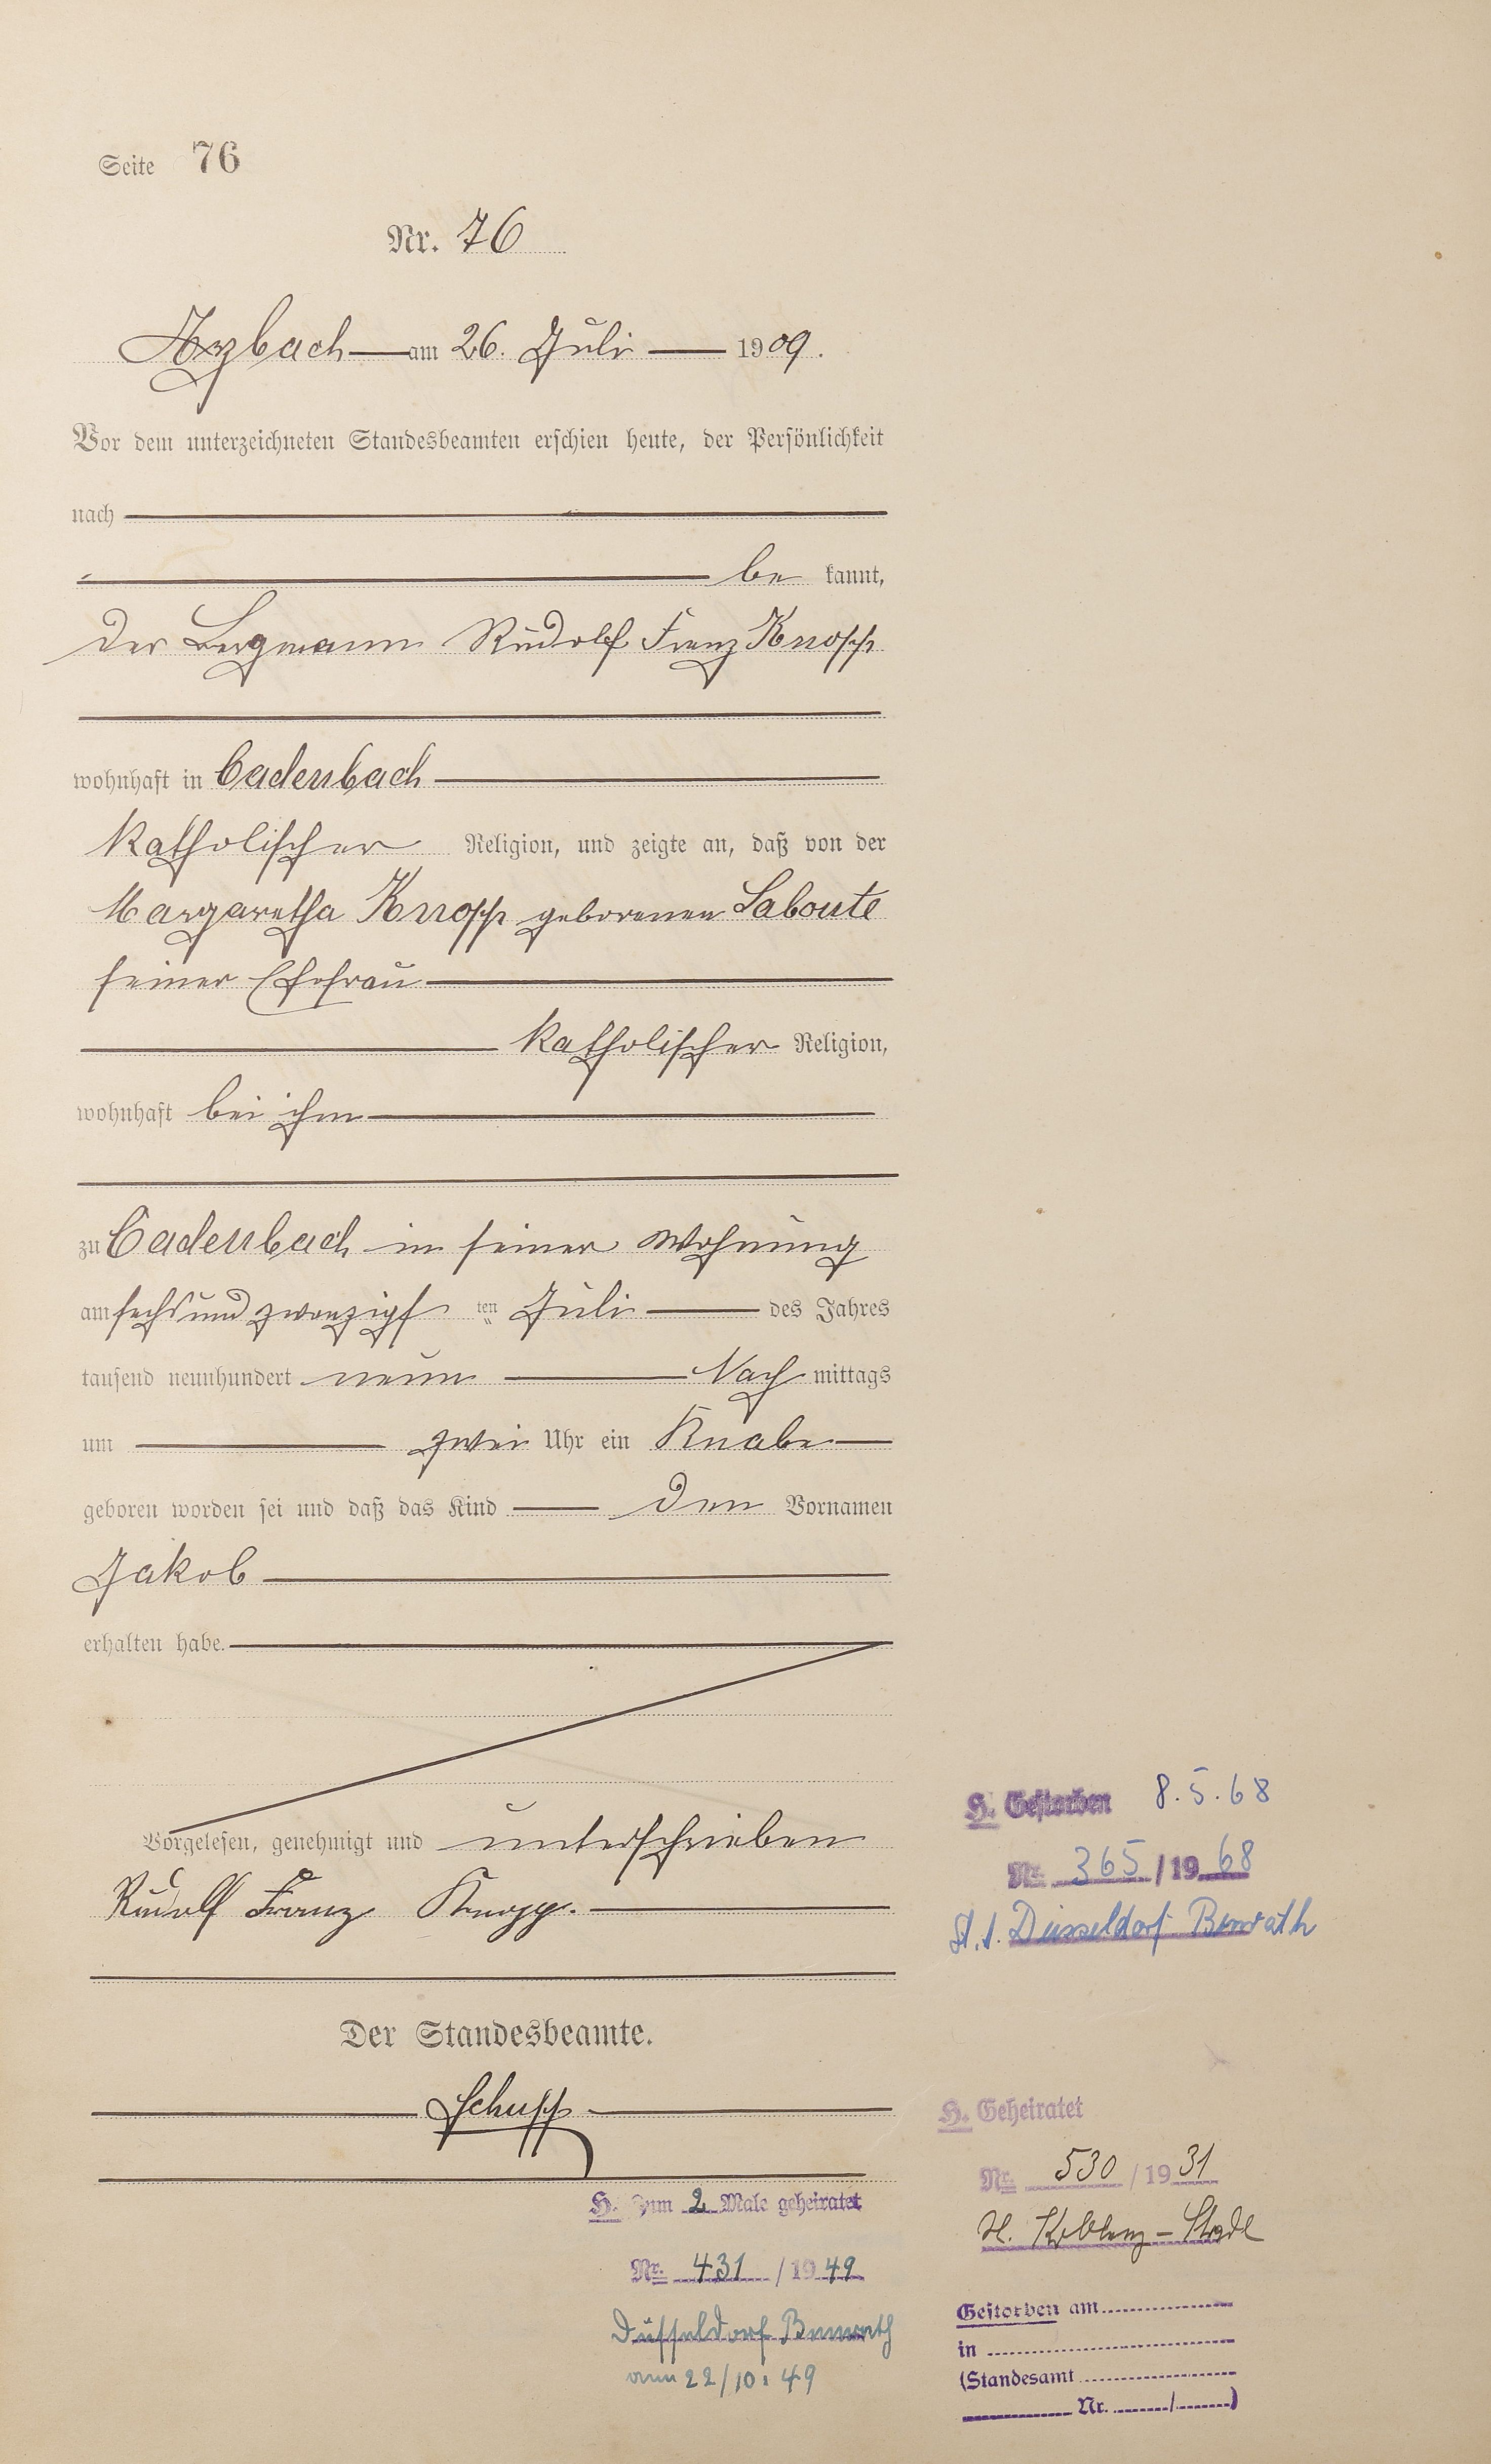 Seite 76
Nr. 76
Arzbach am 26. Juli 1909.
Vor dem unterzeichneten Standesbeamten erschien heute, der Persönlichkeit
nach
be kannt,
der Bergmann Rudolf Franz Knopp
wohnhaft in Cadenbach
katholischer Religion, und zeigte an, daß von der
Margaretha Knopp geborenen Laboute
seiner Ehefrau
katholischer Religion,
wohnhaft bei ihm
zu Cadenbach in seiner Wohnung
am sechsundzwanzigs ten Juli des Jahres
tausend neunhundert neun Nach mittags
um zwei Uhr ein Knabe
geboren worden sei und daß das Kind den Vornamen
Jakob
erhalten habe.
Vorgelesen, genehmigt und unterschrieben
Rudolf Franz Knopp.
Der Standesbeamte.
Schupp
H. Zum 2 Male geheiratet
Nr. 431 / 1949
Düsseldorf Benrath
am 22/10. 49
H. Gestorben 8.5.68
Nr. 365 / 1968
St. A. Düsseldorf-Benrath
H. Geheiratet
Nr. 530 / 1931
Koblenz - Stadt
Gestorben am
in
(Standesamt
Nr. / )